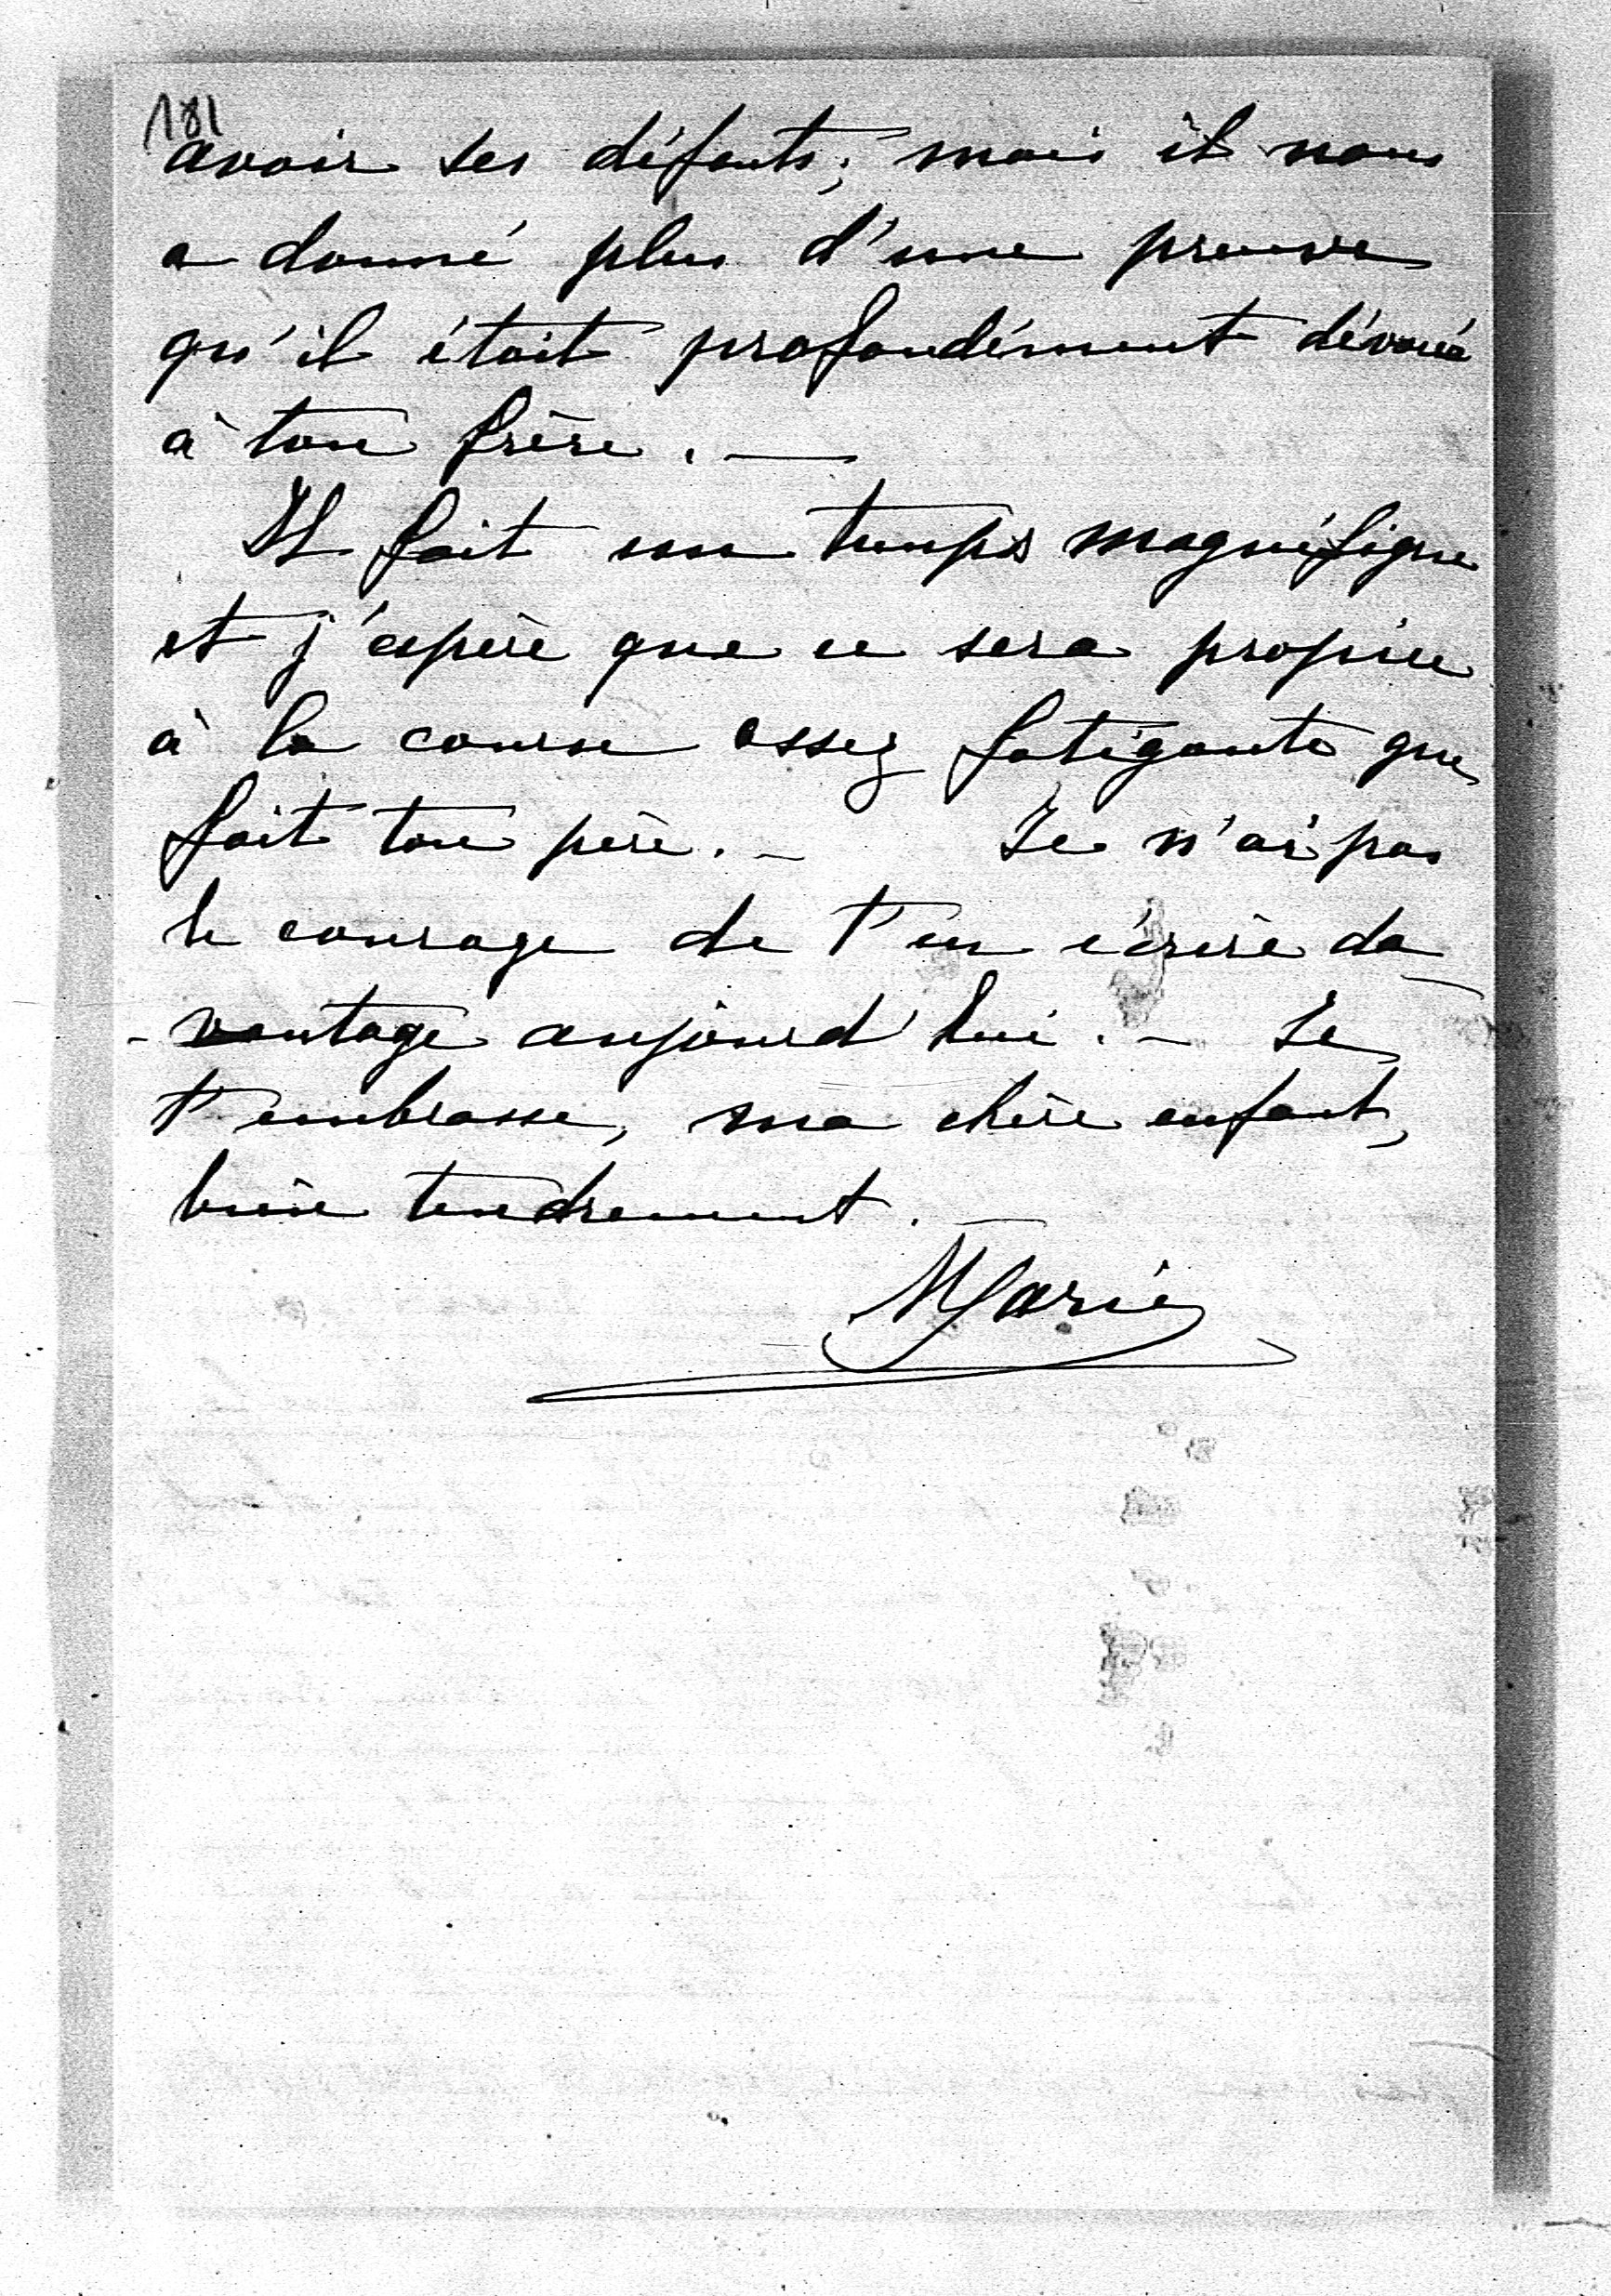 181
avoir ses défauts; mais il nous
a donné plus d'une preuve
qu'il était profondément dévoué
à ton frère. —
Il fait un temps magnifique
et j'espère que ce sera propice
à la course assez fatigante que
fait ton père. — Je n'ai pas
le courage de t'en écrire da-
-vantage aujourd'hui. — Je
t'embrasse, ma chère enfant,
bien tendrement. —
Marie